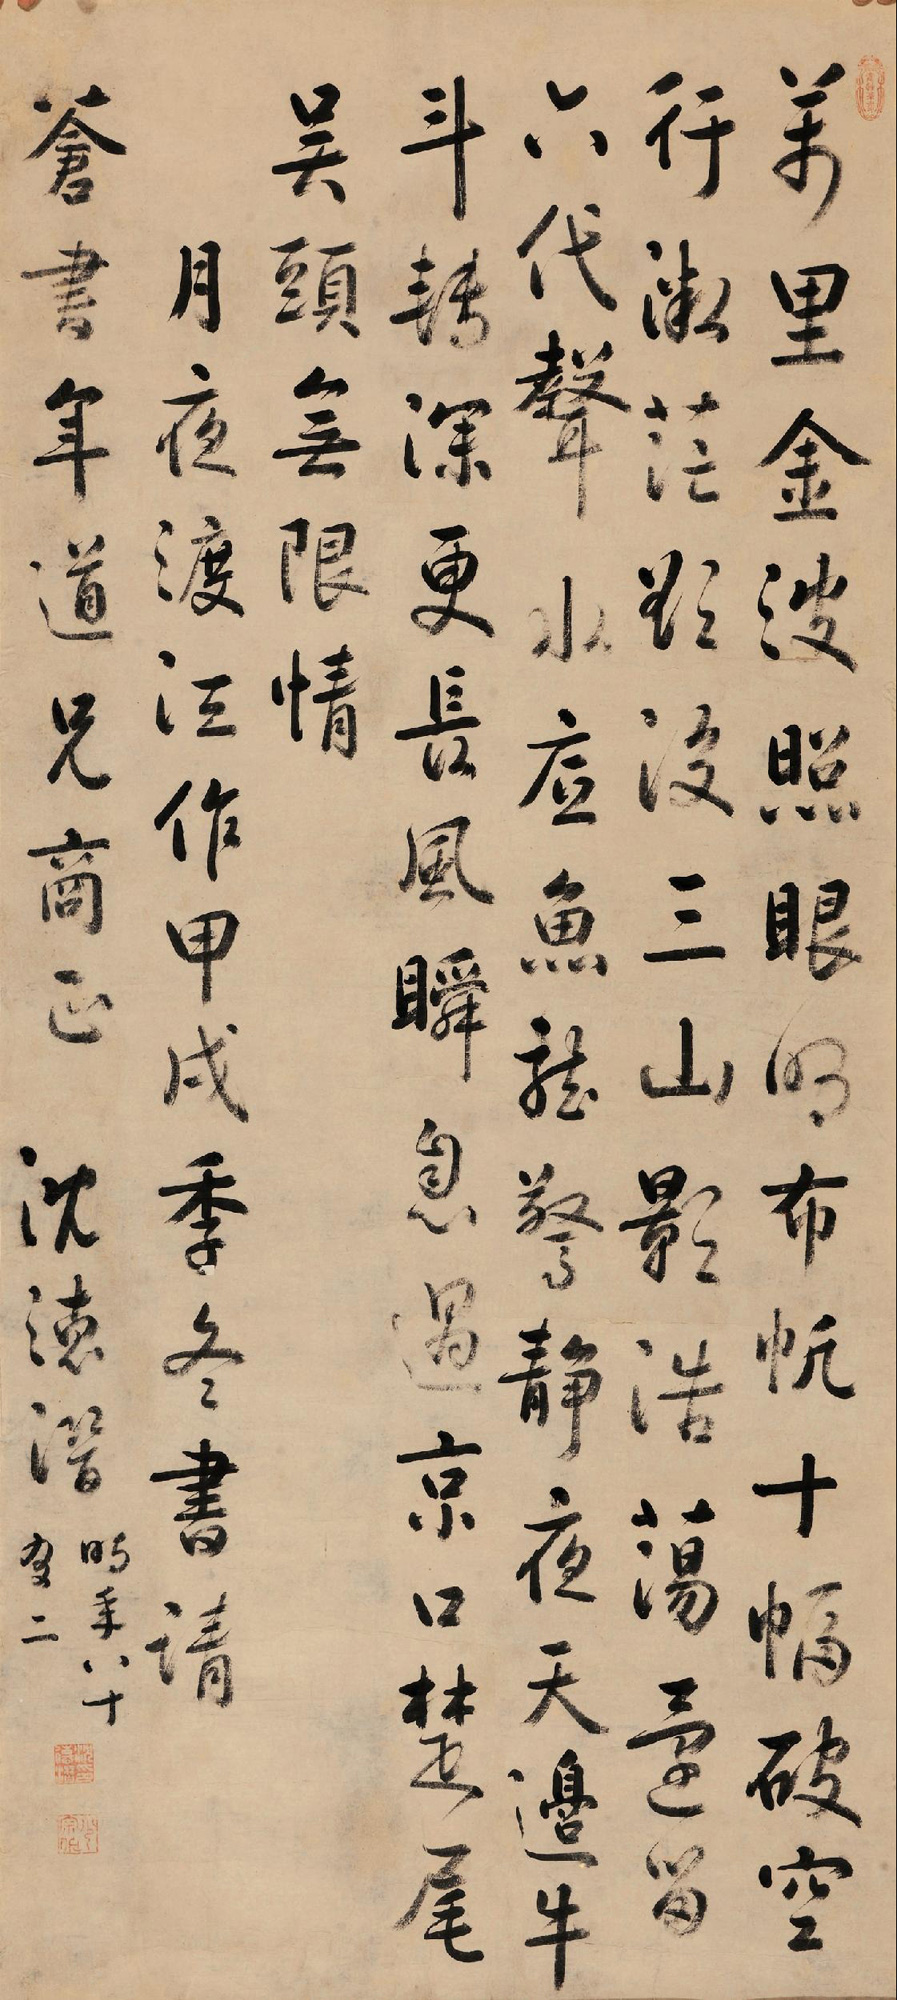 萬里金波照眼明布帆十幅破空
行微茫欲沒三山影浩蕩還留
六代聲水府魚龍驚靜夜天邊牛
斗轉深更長風瞬息過京口楚尾
吳頭無限情
月夜渡江作甲戌季冬書請
蒼書年道兄商正 沈德潛
時年八十
有二